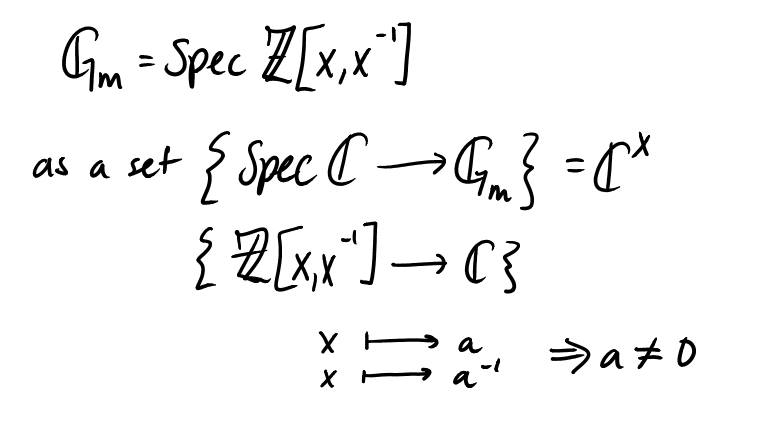 𝔾ₘ = Spec ℤ[x, x⁻¹]
as a set { Spec ℂ ⟶ 𝔾ₘ } = ℂˣ
{ ℤ[x, x⁻¹] ⟶ ℂ }
x ⟼ a ⇒ a ≠ 0
x ⟼ a⁻¹